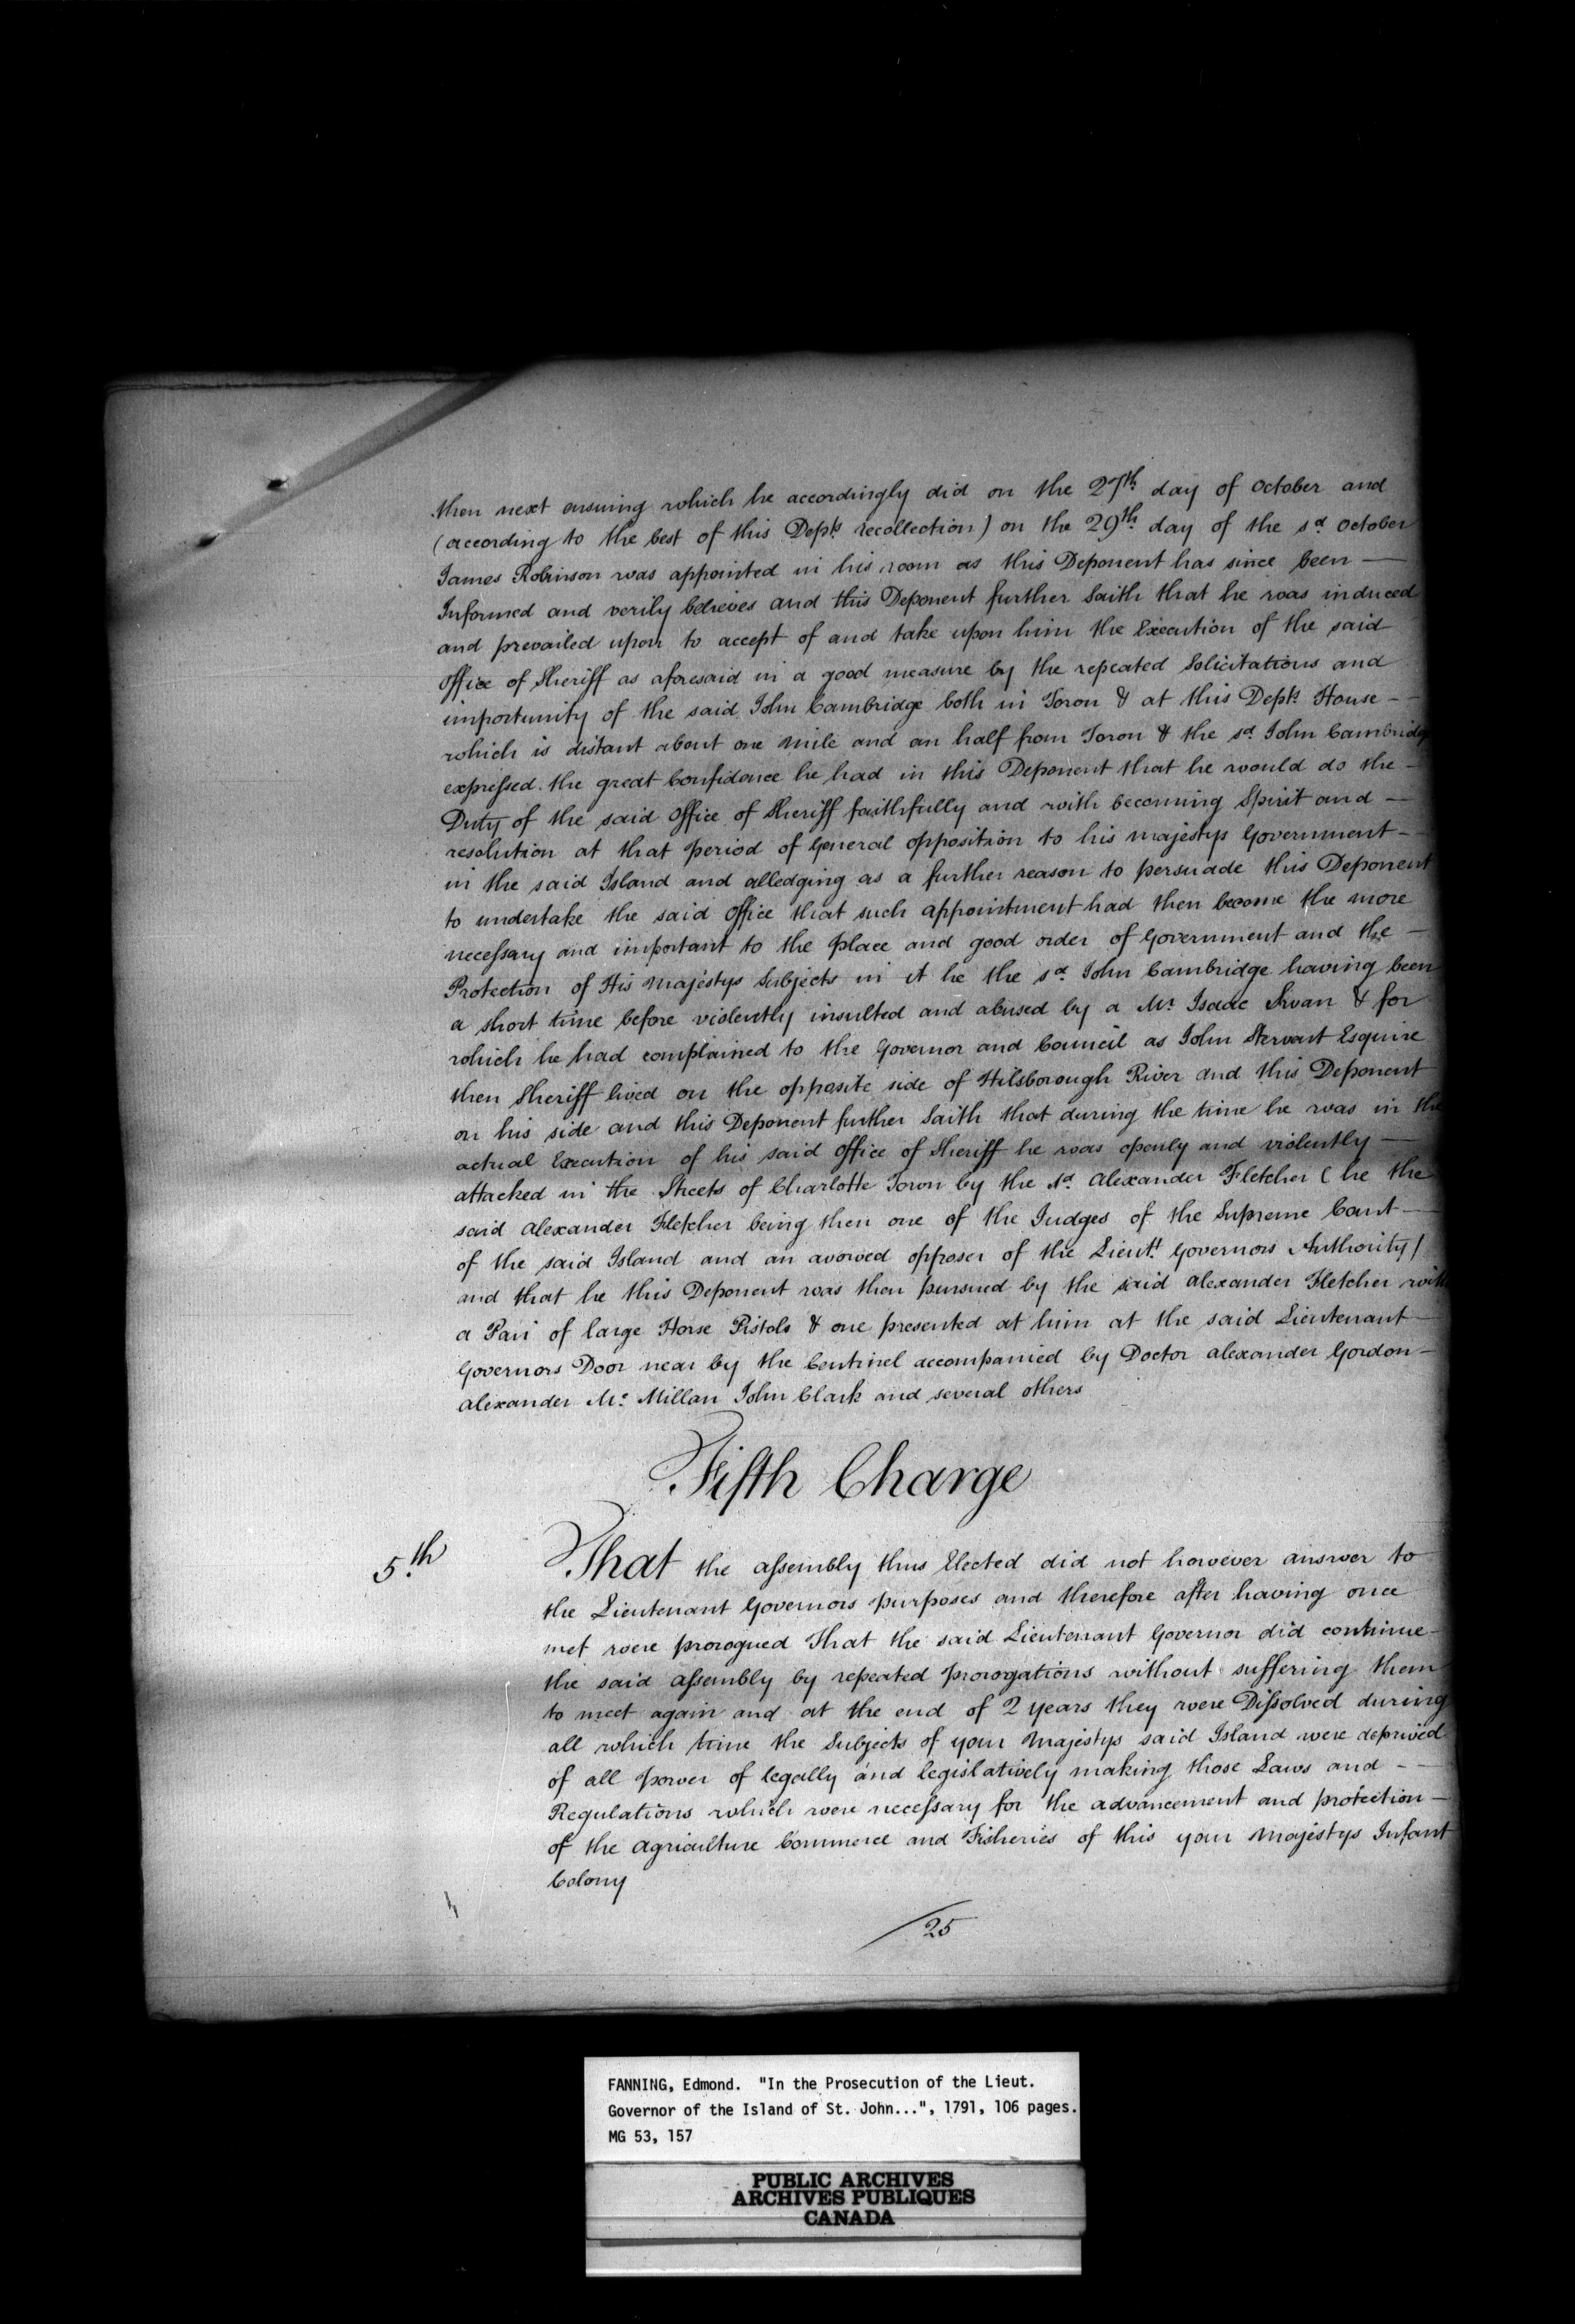 then next ensuing which he accordingly did on the 27th day of October and
(according to the best of this Depts recollection) on the 29th day of the sd October
James Robinson was appointed in his room as this Deponent has since been —
Informed and verily believes and this Deponent further Saith that he was induced
and prevailed upon to accept of and take upon him the Execution of the said
Office of Sheriff as aforesaid in a good measure by the repeated Solicitations and
importunity of the said John Cambridge both in Town & at this Depts House - -
which is distant about one Mile and an half from Town & the sd John Cambridge
expressed the great Confidence he had in this Deponent that he would do the -
Duty of the said Office of Sheriff faithfully and with becoming Spirit and —
resolution at that period of General opposition to his Majestys Government - -
in the said Island and alledging as a further reason to persuade this Deponent
to undertake the said Office that such appointment had then become the more
necessary and important to the place and good order of Government and the —
Protection of His Majestys Subjects in it he the sd John Cambridge having been
a short time before violently insulted and abused by a Mr Isaac Swan & for
which he had complained to the Governor and Council as John Stewart Esquire
then Sheriff lived on the opposite side of Hilsborough River and this Deponent
on his side and this Deponent further Saith that during the time he was in the
actual Execution of his said Office of Sheriff he was openly and violently —
attacked in the Streets of Charlotte Town by the sd Alexander Fletcher (he the
said Alexander Fletcher being then one of the Judges of the Supreme Court —
of the said Island and an avowed opposer of the Lieutt Governors Authority/
and that he this Deponent was then pursued by the said Alexander Fletcher with
a Pair of large Horse Pistols & one presented at him at the said Lieutenant —
Governors Door near by the Centinel accompanied by Doctor Alexander Gordon -
Alexander Mc Millan John Clark and several others
Fifth Charge
5th That the assembly thus Elected did not however answer to
the Lieutenant Governors purposes and therefore after having once
met were prorogued That the said Lieutenant Governor did continue -
the said assembly by repeated prorogations without suffering them
to meet again and at the end of 2 Years they were Dissolved during
all which time the Subjects of your Majestys said Island were deprived
of all power of legally and legislatively making those Laws and - -
Regulations which were necessary for the advancement and protection —
of the Agriculture Commerce and Fisheries of this your Majestys Infant
Colony
/25
FANNING, Edmond. "In the Prosecution of the Lieut.
Governor of the Island of St. John...", 1791, 106 pages.
MG 53, 157
PUBLIC ARCHIVES
ARCHIVES PUBLIQUES
CANADA